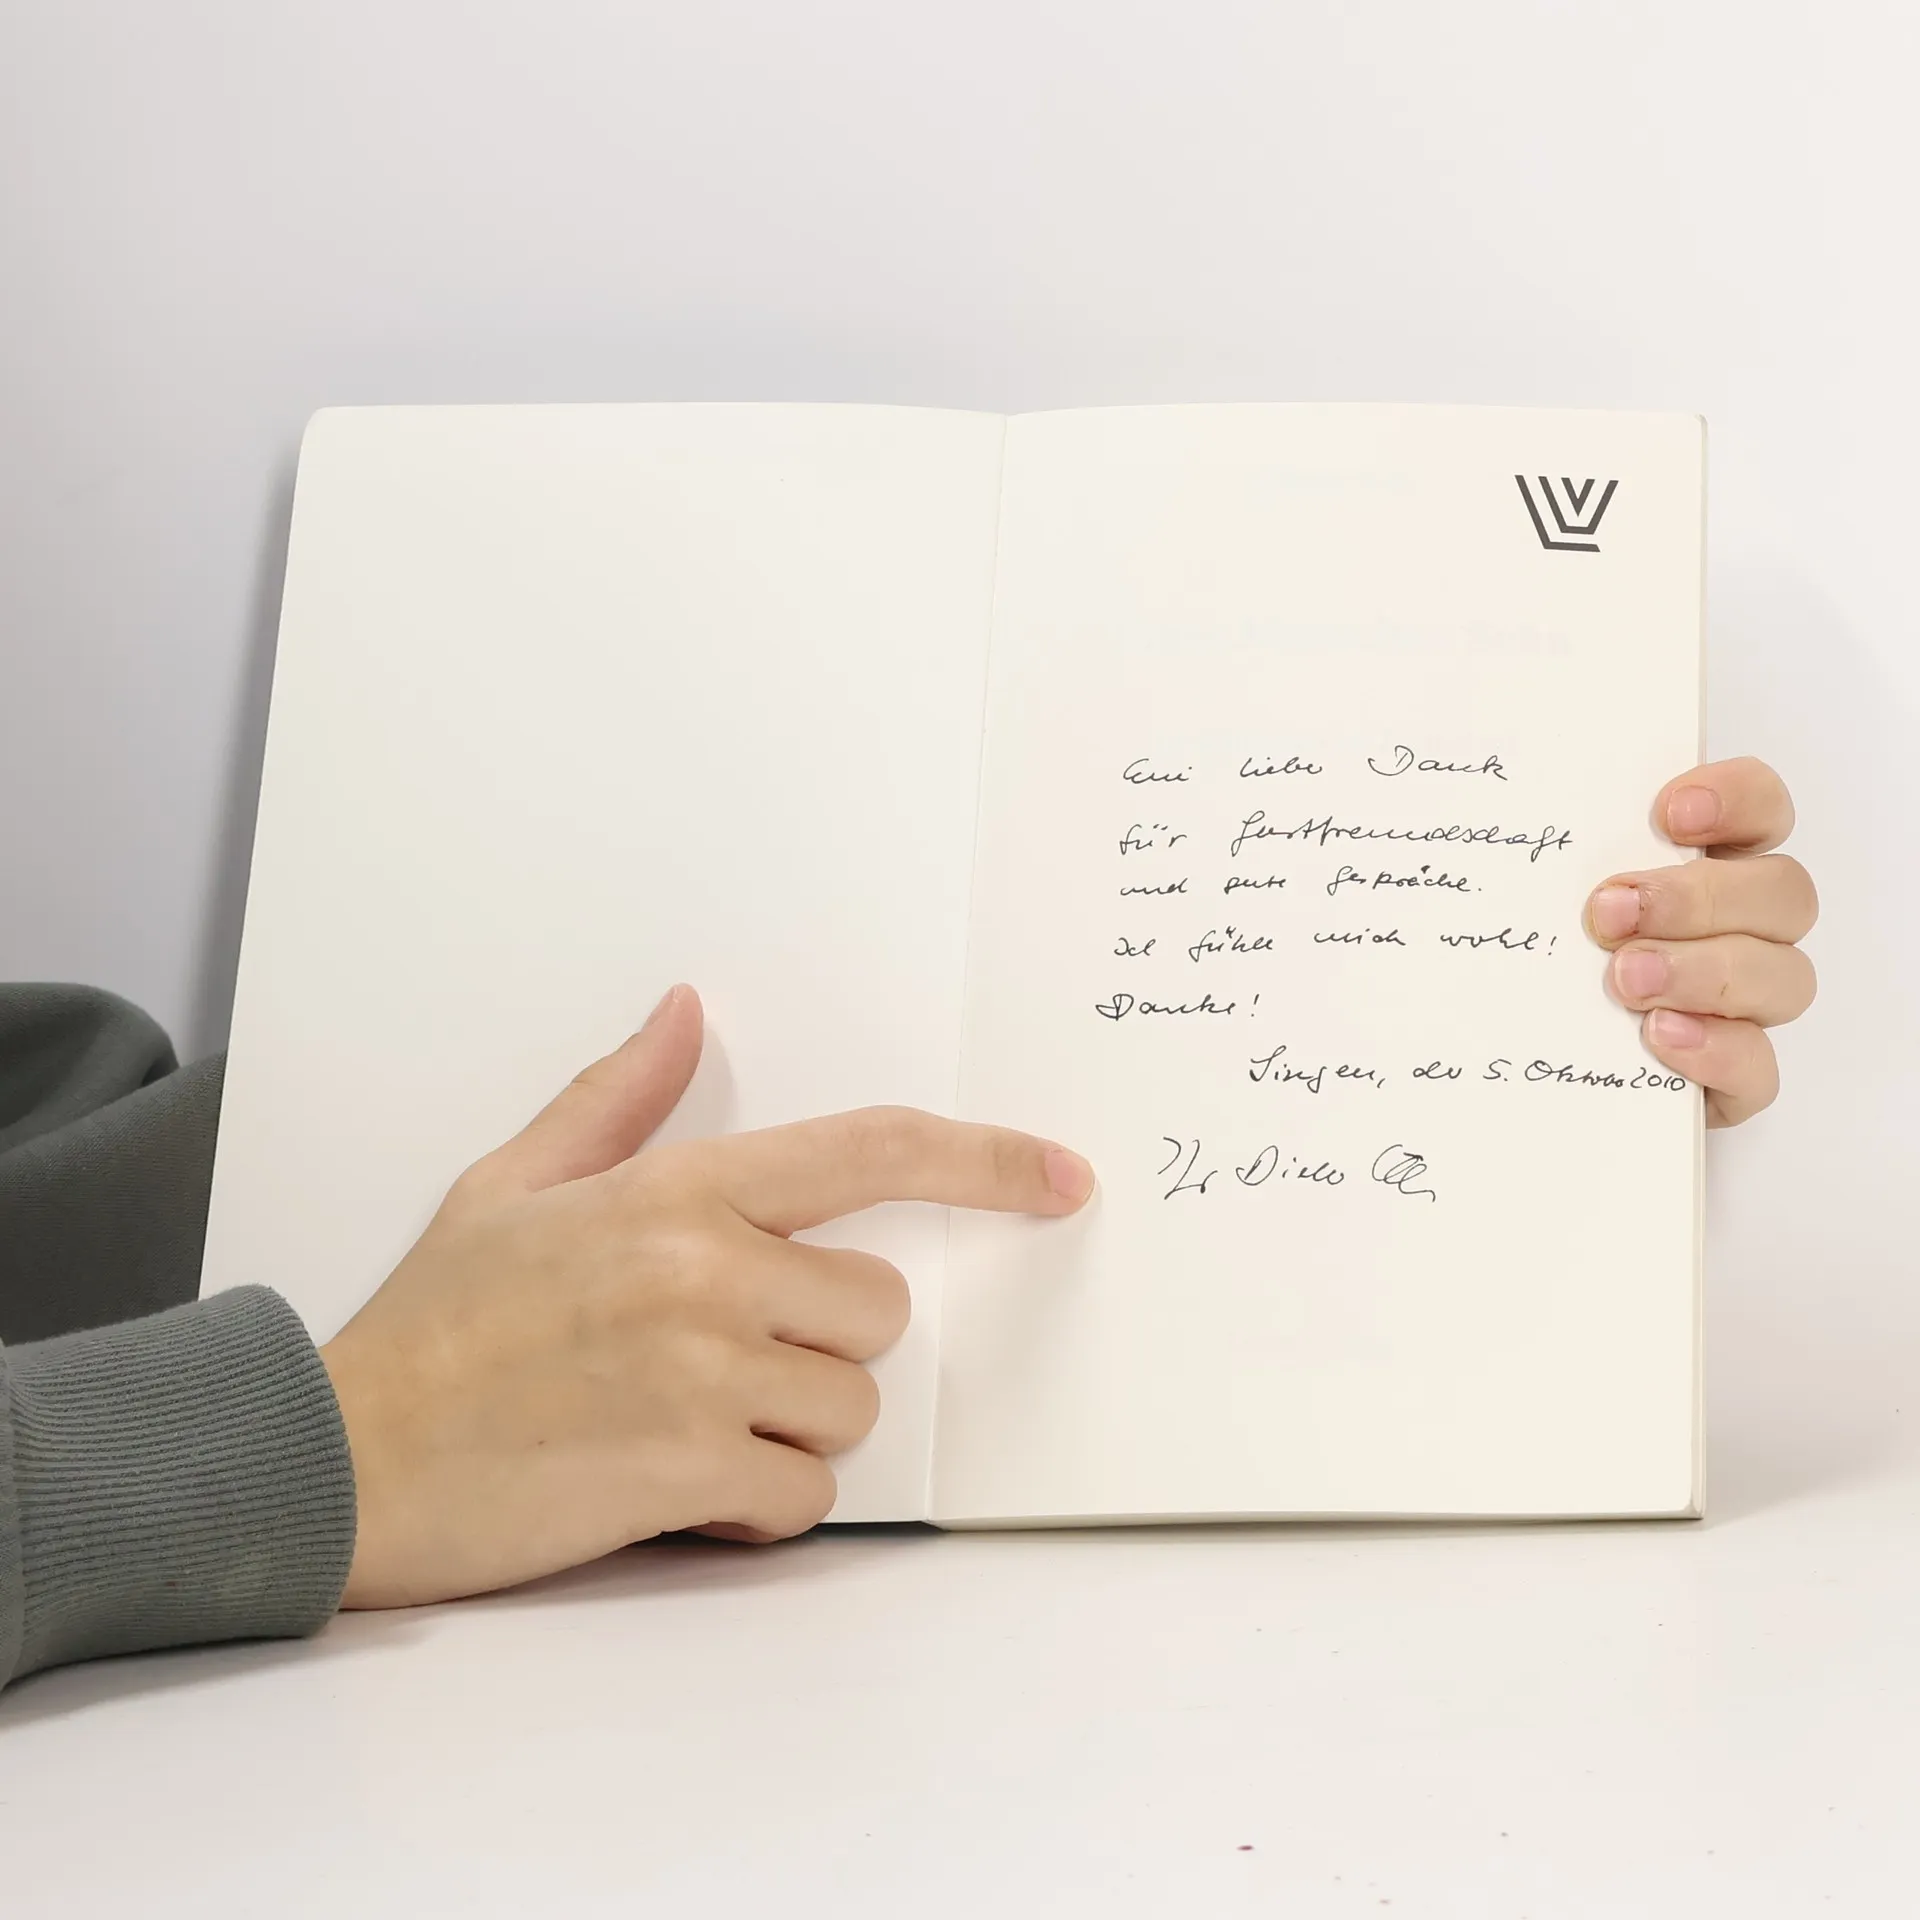 Ein lieber Dank
für Gastfreundschaft
und gute Gespräche.
Ich fühle mich wohl!
Danke!
Singen, der 5. Oktober 2010
Ihr Dieter